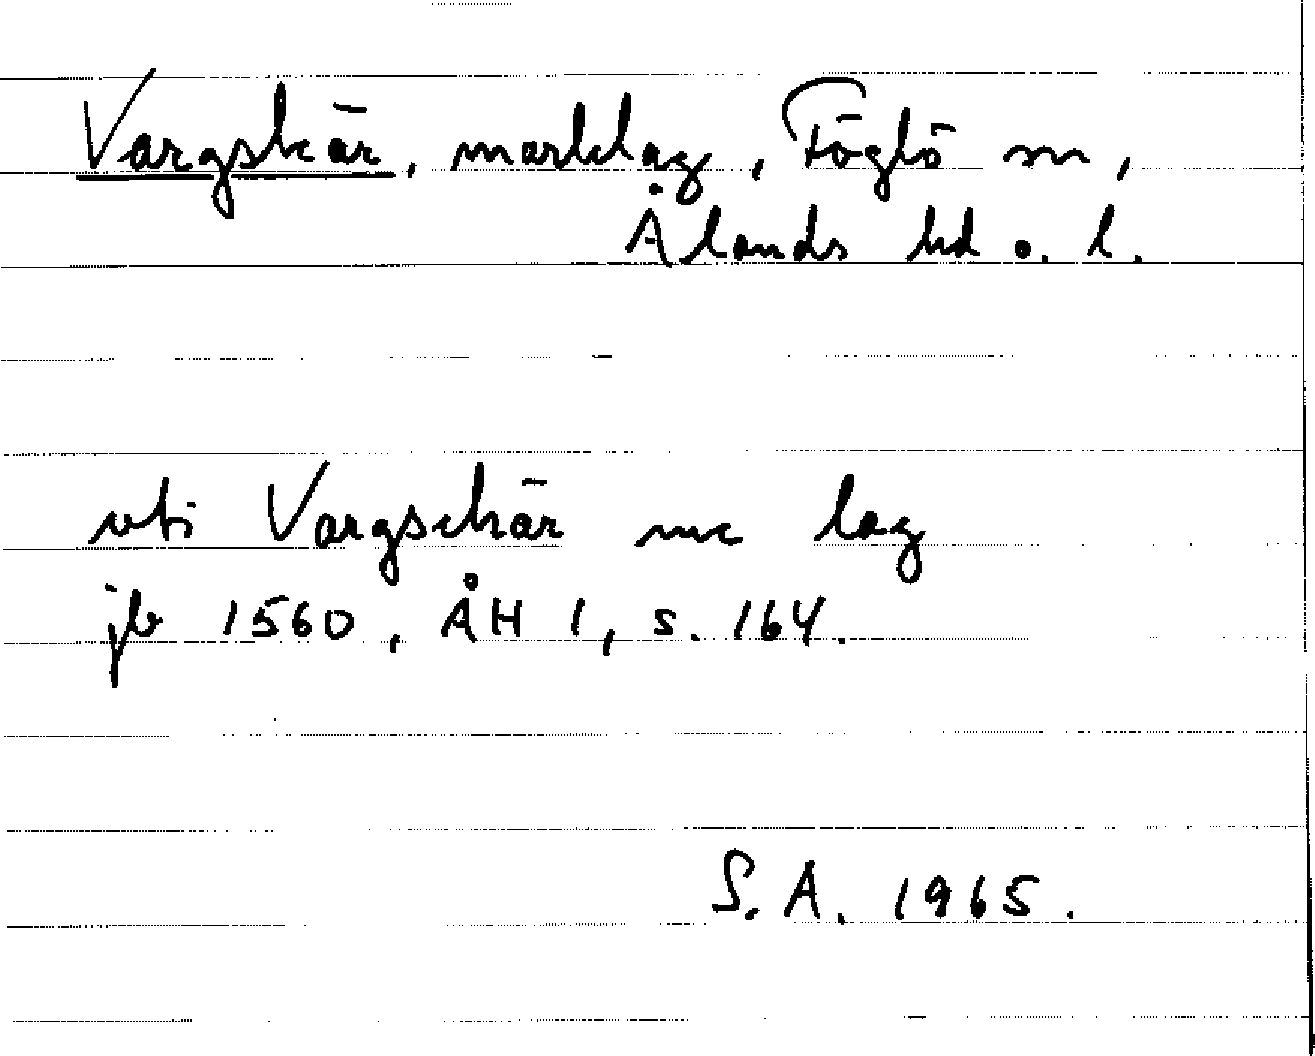 Vargskär, marklag, Föglö sn,
Ålands hd o. l.
uti Vargschär mc lag
jb 1560, ÅH 1, s. 164.
S. A. 1965.